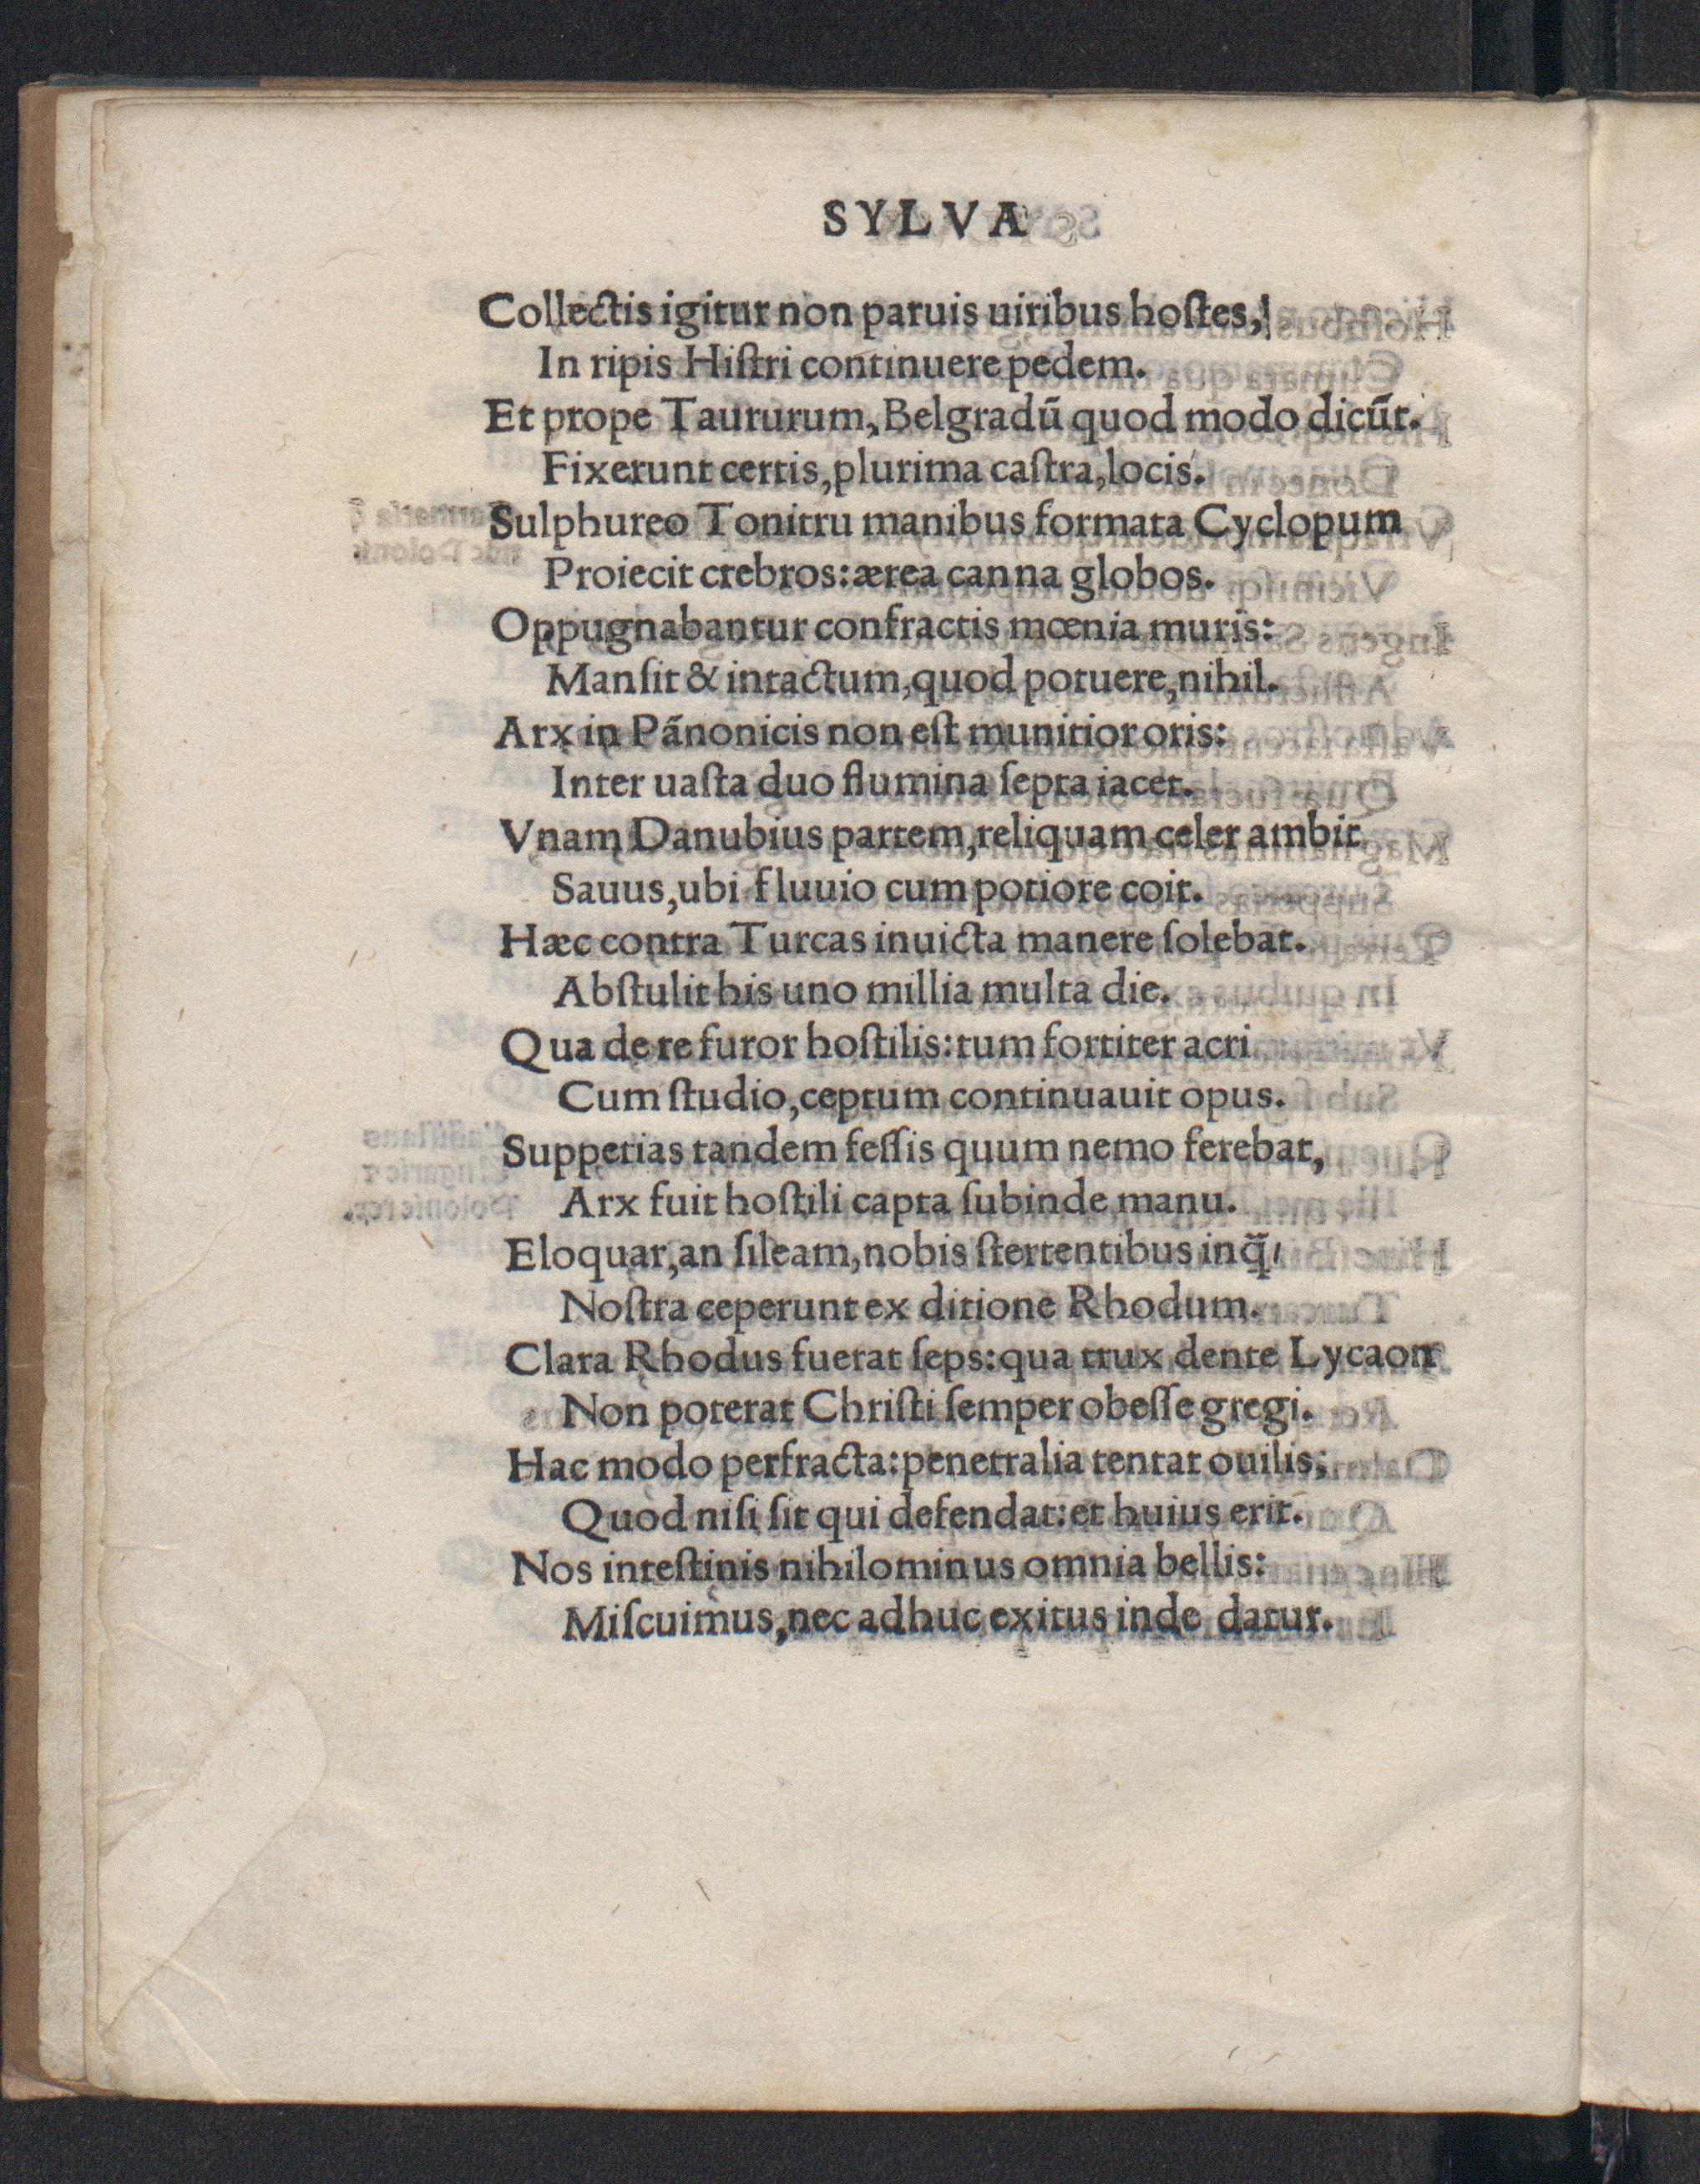 SYLVA
Collectis igitur non paruis uiribus hoſtes,
In ripis Hiſtri continuere pedem.
Et prope Taururum, Belgradū quod modo dicūt.
Fixerunt certis, plurima caſtra, locis.
Sulphureo Tonitru manibus formata Cyclopum
Proiecit crebros: ærea canna globos.
Oppugnabantur confractis mœnia muris:
Manſit & intactum, quod potuere, nihil.
Arx in Pãnonicis non eſt munitior oris:
Inter uaſta duo flumina ſepta iacet.
Vnam Danubius partem, reliquam celer ambit
Sauus, ubi fluuio cum potiore coit.
Hæc contra Turcas inuicta manere ſolebat.
Abſtulit his uno millia multa die.
Qua de re furor hoſtilis: tum fortiter acri
Cum ſtudio, ceptum continuauit opus.
Suppetias tandem feſſis quum nemo ferebat,
Arx fuit hoſtili capta ſubinde manu.
Eloquar, an ſileam, nobis ſtertentibus inq̃
Noſtra ceperunt ex ditione Rhodum.
Clara Rhodus fuerat ſeps: qua trux dente Lycaon
Non poterat Chriſti ſemper obeſſe gregi.
Hac modo perfracta: penetralia tentat ouilis;
Quod niſi ſit qui defendat: et huius erit.
Nos inteſtinis nihilominus omnia bellis:
Miſcuimus, nec adhuc exitus inde datur.